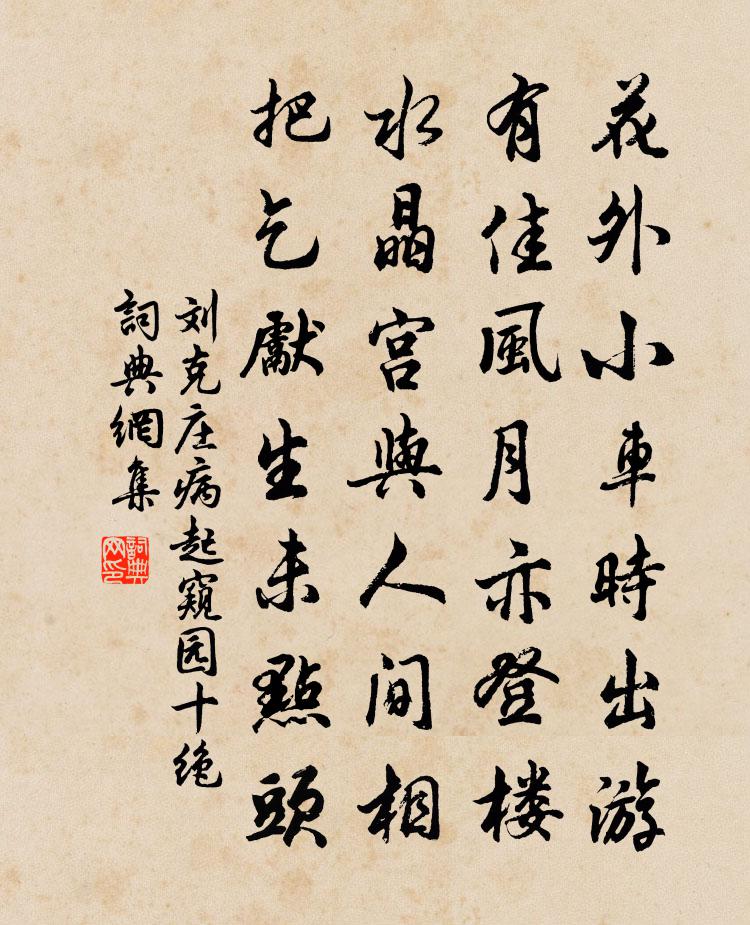 花外小車時出游
有佳風月亦登楼
水晶宫與人间相
把乞獻生未點頭
刘克庄病起窺园十绝
詞典網集
詞典
网印